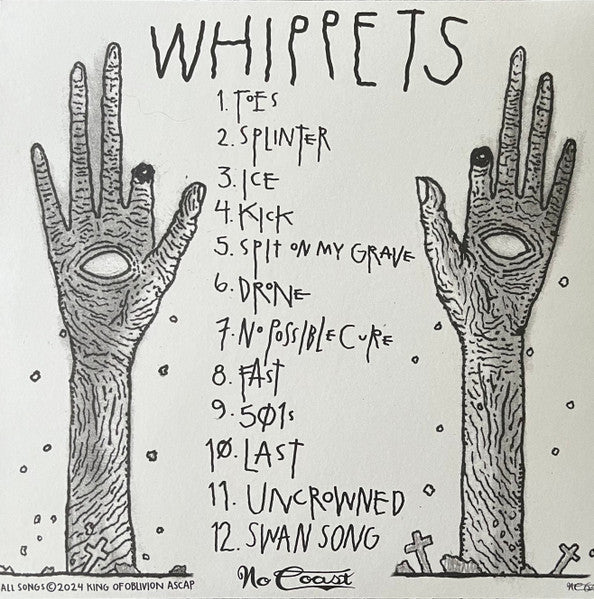 WHIPPETS
1. TOES
2. SPLINTER
3. ICE
4. KICK
5. SPIT ON MY GRAVE
6. DRONE
7. NO POSSIBLE CURE
8. FAST
9. 5Ø1s
1Ø. LAST
11. UNCROWNED
12. SWAN SONG
No Coast
ALL SONGS © 2024 KING OF OBLIVION ASCAP